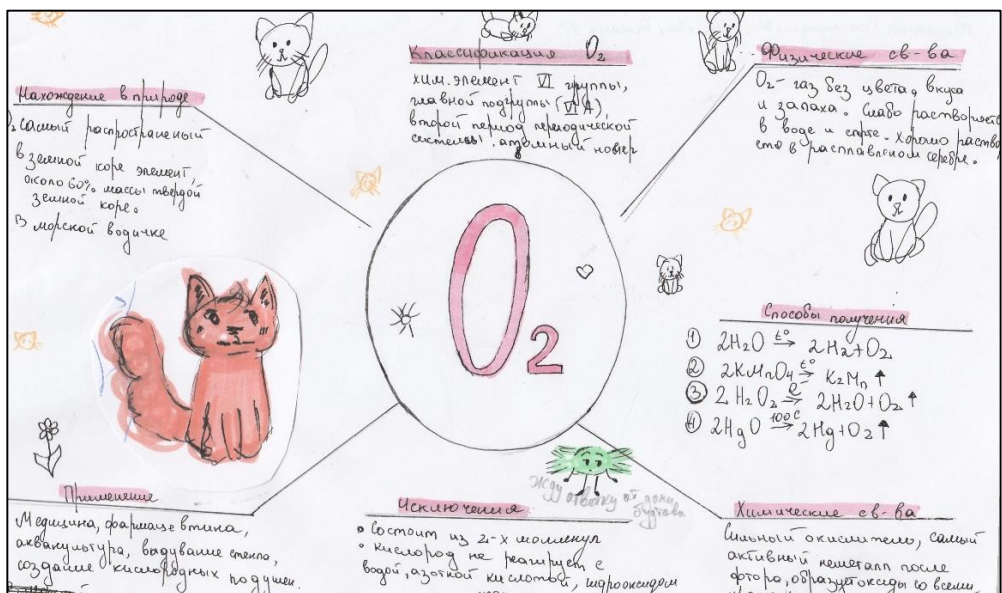 Нахождение в природе
самый распространеный
в земной коре элемент,
около 60% массы твердой
земной коре.
В морской водичке
Классификация O₂
хим. элемент VI группы,
главной подгруппы (VI A),
второй период периодической
системы, атомный номер
8
Физические св-ва
O₂ - газ без цвета, вкуса
и запаха. Слабо растворяется
в воде и спирте. Хорошо раство
в расплавленом серебре.
O₂
Способы получения
① 2H₂O t°→ 2H₂+O₂
② 2KMnO₄ t°→ K₂Mn ↑
③ 2H₂O₂ → 2H₂O+O₂↑
④ 2HgO 100C→ 2Hg+O₂↑
Применение
Медицина, фармацевтика,
аквакультура, вадувание стекла,
создание кислородных подушек.
Жду
Исключения
• Состоит из 2-х молекул
• Кислород не реагирует с
водой, азоткой кислотой, гидрооксидом
Химические св-ва
Сильный окислитель, самый
активный неметалл после
фтора, образует оксиды со всеми